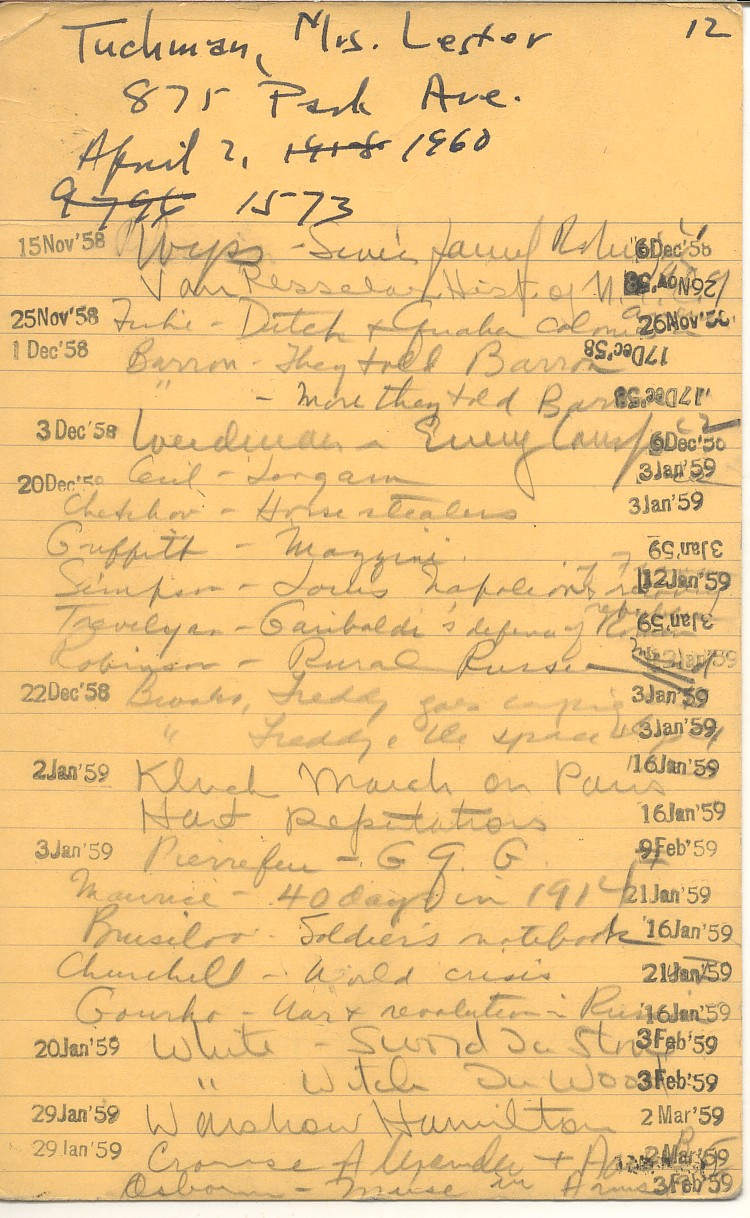 12
Tuchman, Mrs. Lester
875 Park Ave.
April 2, 1918 1960
9796 1573
15Nov'58 Wyss - Swiss Family 6Dec'58
Van Hist. of N. 26Nov'58
25Nov'58 - Dutch + Quaker colonies 26Nov'58
1 Dec'58 Barron - They told Barron 17Dec'58
" - More they told Barron 17Dec'58
3 Dec'58 - Enemy Camp 6Dec'58
20Dec'58 Cecil - 3Jan'59
Chekhov - Horse stealers 3Jan'59
Griffith - Mazzini 3Jan'59
Simpson - Louis Napoleon & recovery 12Jan'59
Trevelyan - Garibaldi's defence of Roman republic 3Jan'59
Robinson - Rural Russia 3Jan'59
22Dec'58 Brooks, Freddy goes camping 3Jan'59
" Freddy & the space 3Jan'59
2Jan'59 Kluck March on Paris 16Jan'59
Hart Reputations 16Jan'59
3Jan'59 Pierrefeu - G Q G 9Feb'59
Maurice - 40 days in 1914 21Jan'59
Brusilov - Soldier's notebook 16Jan'59
Churchill - World crisis 21Jan'59
Gourko - War & revolution in Russia 16Jan'59
20Jan'59 White - Sword In Stone 3Feb'59
" Witch In Wood 3Feb'59
29Jan'59 Warshow Hamilton 2 Mar'59
29Jan'59 Crouse Alexander + 2Mar'59
Osborn - Muse in Arms 3Feb'59